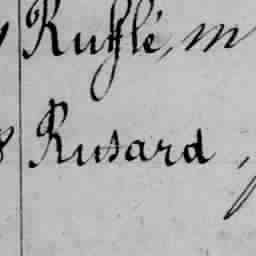 Rufflé, m
Rusard,